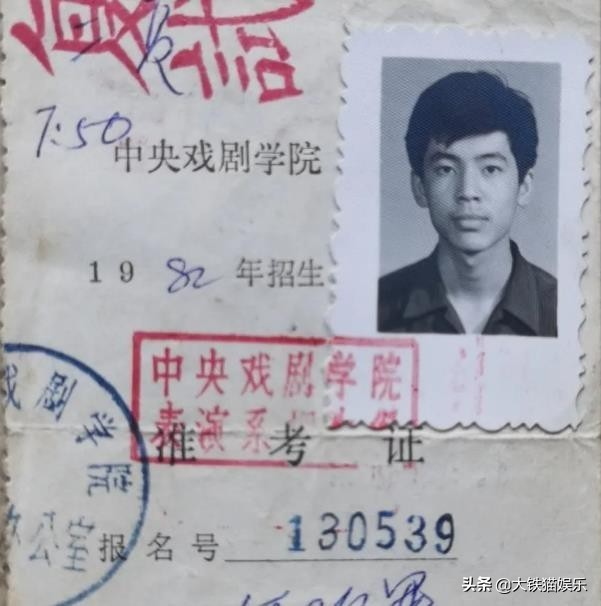 复试
7:50
中央戏剧学院
1982年招生
中央戏剧学院
表演系
准考证
戏剧学院
办公室
报名号 130539
头条 @大铁猫娱乐